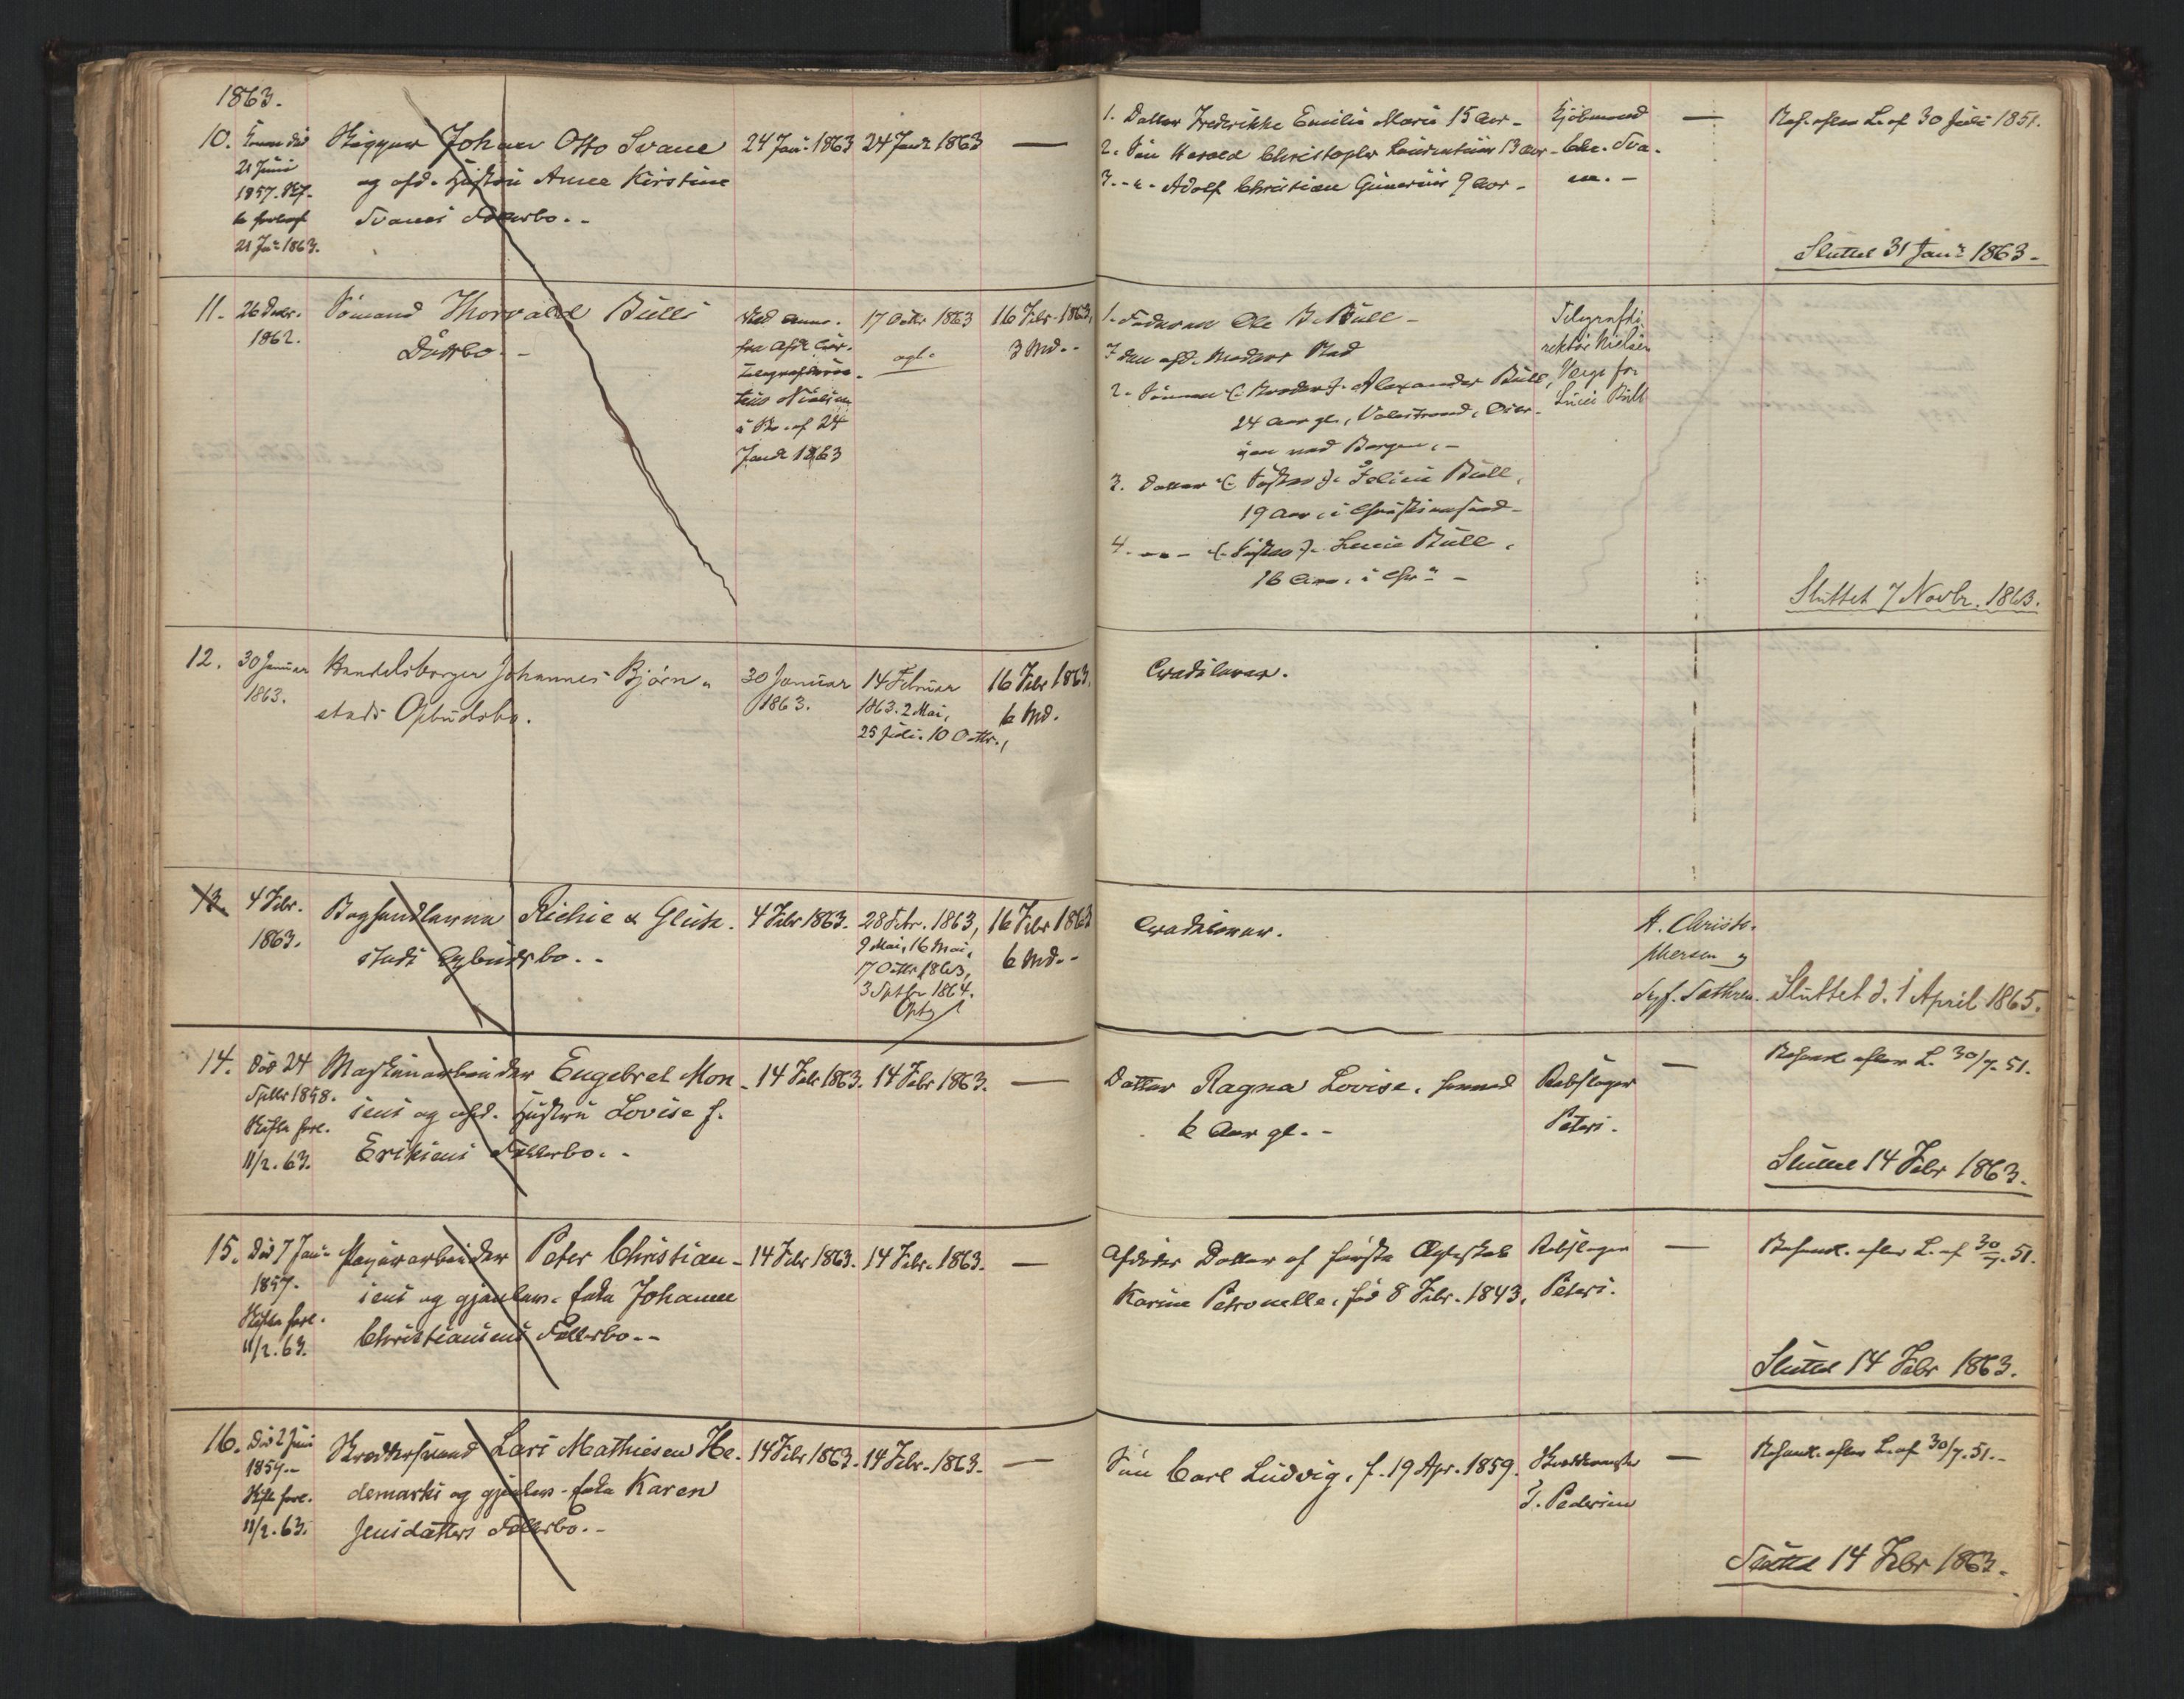 1863.
10. Konen død
21 Juni
1857. Skf-
te forlangt
21 Jan 1863.
Skipper Johan Otto Svane
og afd. Hustru Anne Kirstine
Svanes Fællesbo. -
24 Jan. 1863
24 Janr 1863
—
1. Datter Frederikke Emilie Marie 15 Aar -
2. Søn Harald Christopher Laurentius 13 Aar -
3. - " - Adolf Christian Gunerius 9 Aar -
Kjöbmand
Chr. Sva-
ne. -
—
Beh. efter L. af 30 Juli 1851.
Sluttet 31 Janr 1863 -
11. 26 Decbr.
1862.
Sömand Thorvald Bulls
Dödsbo. -
Ved
fra
Nielsen
af 24
Janr 1863
17 Octbr 1863
opt.
16 Febr. 1863,
3 Md. -
1. Faderen Ole B. Bull -
I den afd. Moders Sted
2. Sönnen (: Broder :) Alexander Bull,
24 Aar gl., Valestrand, Oster-
öen ved Bergen, -
3. Datter (: Söster :) Felicie Bull,
19 Aar, i Christianssand -
4. - " - (: Söster :) Lucie Bull,
16 Aar, i Chra -
Telegrafdi
rektör Nielsen
Værge for
Lucie Bull
Sluttet 7 Novbr. 1863.
12. 30 Januar
1863.
Handelsborger Johannes Bjørn-
stads Opbudsbo.
30 Januar
1863.
14 Februar
1863. 2 Mai,
25 Juli. 10 Octbr.,
16 Febr 1863.
6 Md.
Creditorer.
13. 4 Febr.
1863.
Boghandlerne Richie & Glück-
stads Opbudsbo. -
4 Febr 1863.
28 Febr. 1863,
9 Mai, 16 Mai,
17 Octbr 1863,
3 Septbr 1864.
Opt
16 Febr 1863
6 Md. -
Creditorer.
H. Christo-
phersen og
Sathren.
Sluttet d. 1 April 1865.
14. Död 24
Septbr 1858.
Skifte forl.
11/2. 63.
Maskinarbeider Engebret Mon-
sens og afd. Hustru Lovise f.
Eriksens Fællesbo. -
14 Febr 1863.
14 Febr 1863.
—
Datter Ragna Lovise,
6 Aar gl. -
Rebslager
Peters.
—
Behandl. efter L. 30/7. 51.
Sluttet 14 Febr 1863.
15. Död 7 Janr
1857.
Skifte forl.
11/2. 63.
Peter Christian-
sens og gjenlev. Enke Johanne
Christiansens Fællesbo. -
14 Febr 1863.
14 Febr. 1863.
—
Afdödes Datter af første Ægteskab
Karine Petronelle, föd 8 Febr. 1843,
Rebslager
Peters.
—
Behandl. efter L. af 30/7. 51.
Sluttet 14 Febr 1863.
16. Död 2 Juni
1859 -
Skfte forl.
11/2. 63.
Skræddersvend Lars Mathiesen He-
demarks og gjenlev. Enke Karen
Jensdatters Fællesbo. -
14 Febr 1863.
14 Febr. 1863.
—
Sön Carl Ludvig, f. 19 Apr. 1859.
Skræddermester
J. Pedersen
—
Behandl. efter L. af 30/7. 51. -
Sluttet 14 Febr 1863.